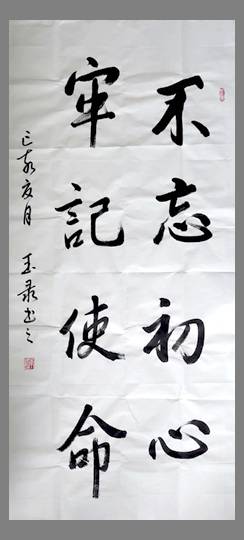 不忘初心
牢記使命
己亥夏月 玉录书之